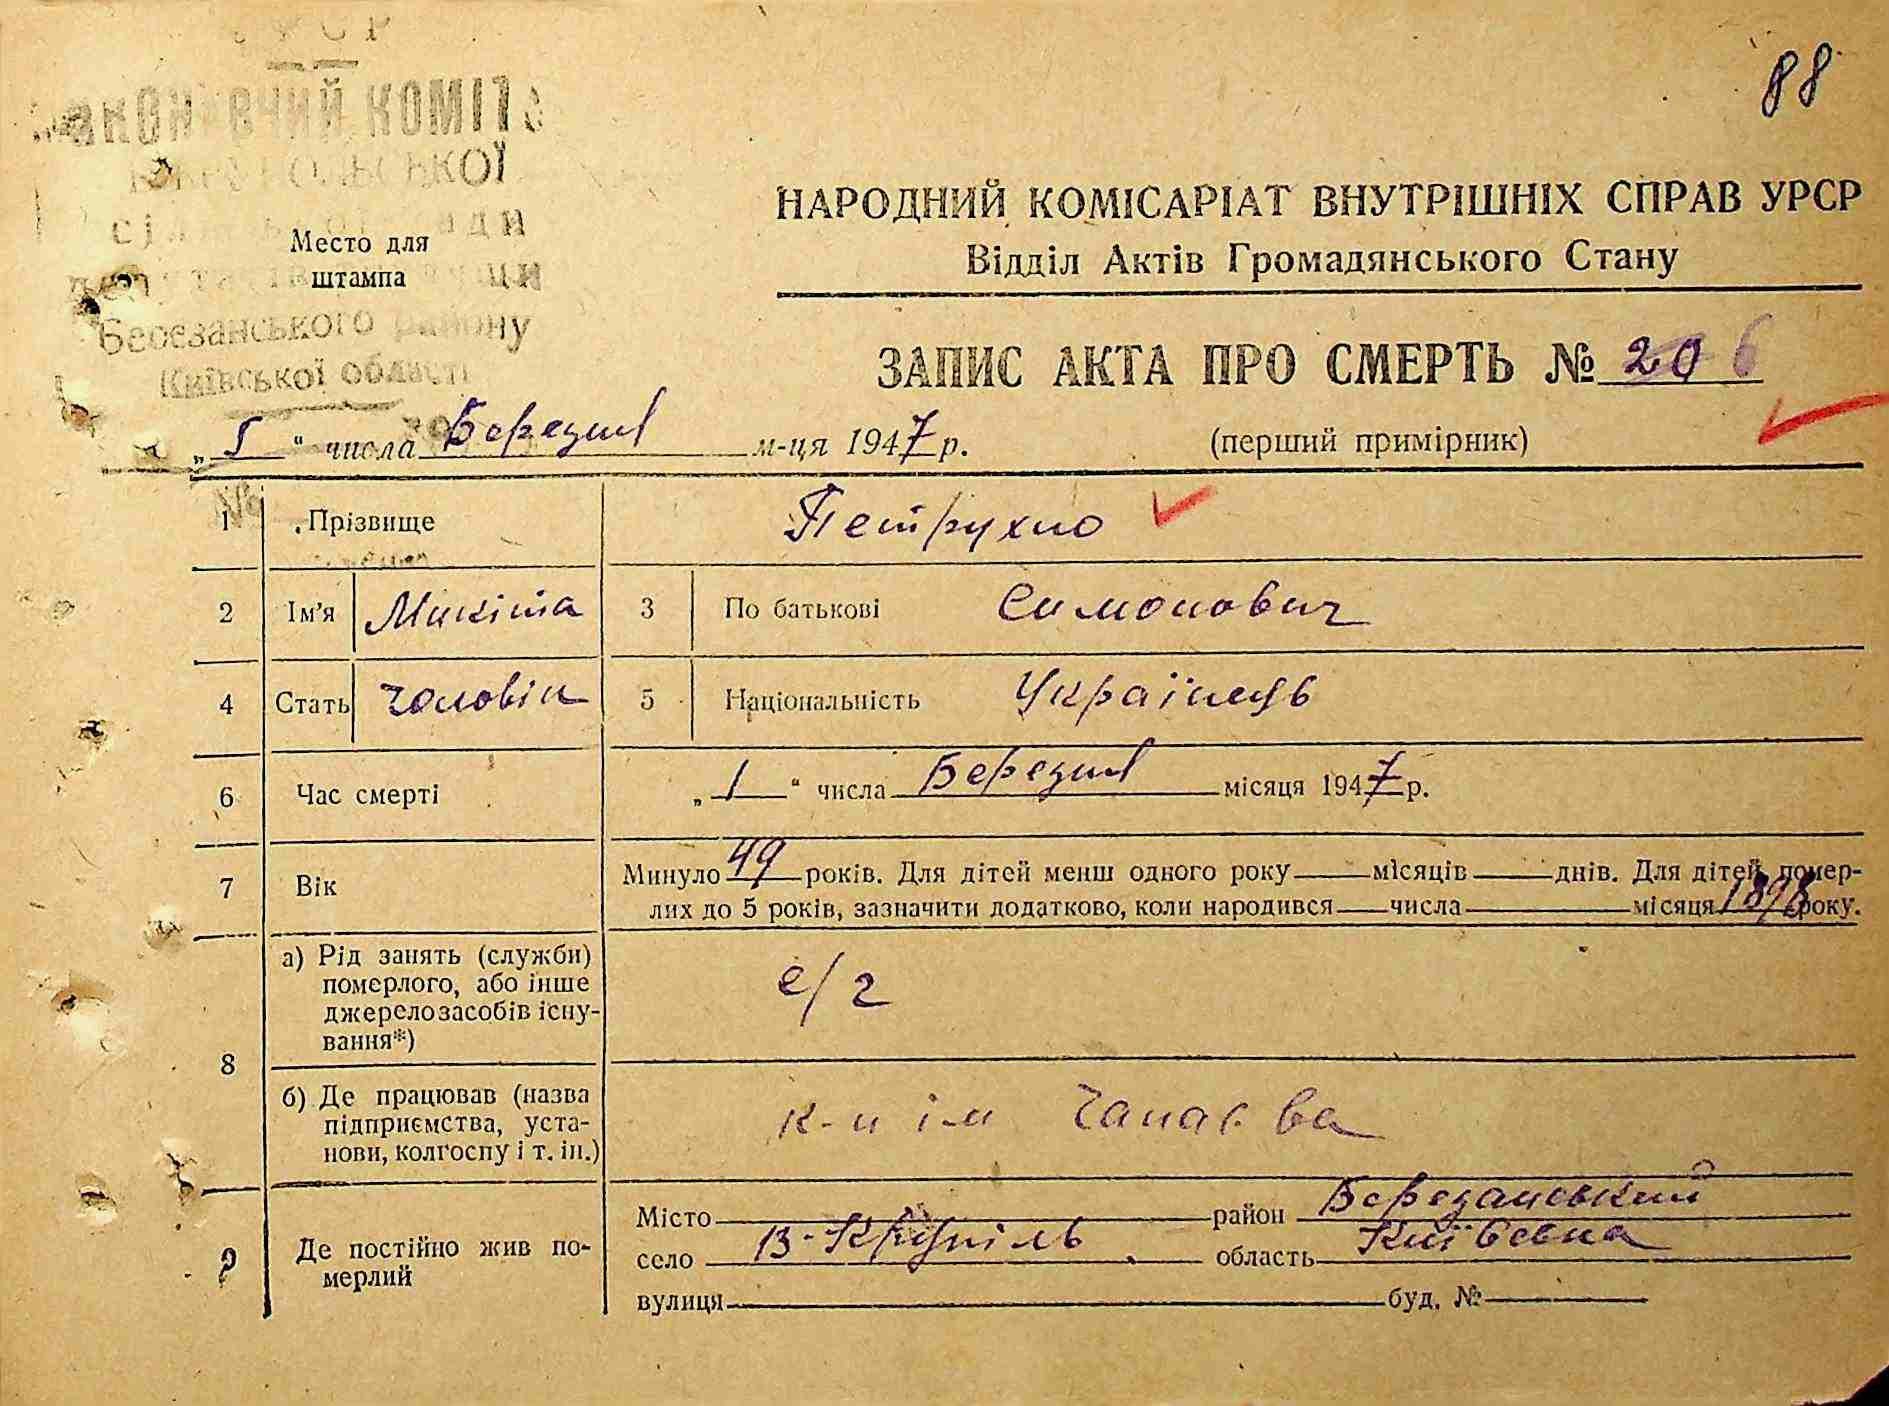 УРСР
ВИКОНАВЧИЙ КОМІТ
сільської ради
Березанського району
Київської області
Место для
штампа
88
НАРОДНИЙ КОМІСАРІАТ ВНУТРІШНІХ СПРАВ УРСР
Відділ Актів Громадянського Стану
ЗАПИС АКТА ПРО СМЕРТЬ № 206
„ 1 “ числа Березня м-ця 1947 р.
(перший примірник)
1 Прізвище Петрухно
2 Ім'я Микіта 3 По батькові Симонович
4 Стать чоловік 5 Національність Українець
6 Час смерті „ 1 “ числа Березня місяця 1947 р.
7 Вік Минуло 49 років. Для дітей менш одного року — місяців — днів. Для дітей, помер-
лих до 5 років, зазначити додатково, коли народився — числа — місяця 1898 року.
8 а) Рід занять (служби)
померлого, або інше
джерело засобів існу-
вання*)
с/г
б) Де працював (назва
підприємства, уста-
нови, колгоспу і т. ін.)
к-п ім Чапаєва
9 Де постійно жив по-
мерлий
Місто — район Березанський
село В-Крупіль область Київська
вулиця — буд. № —